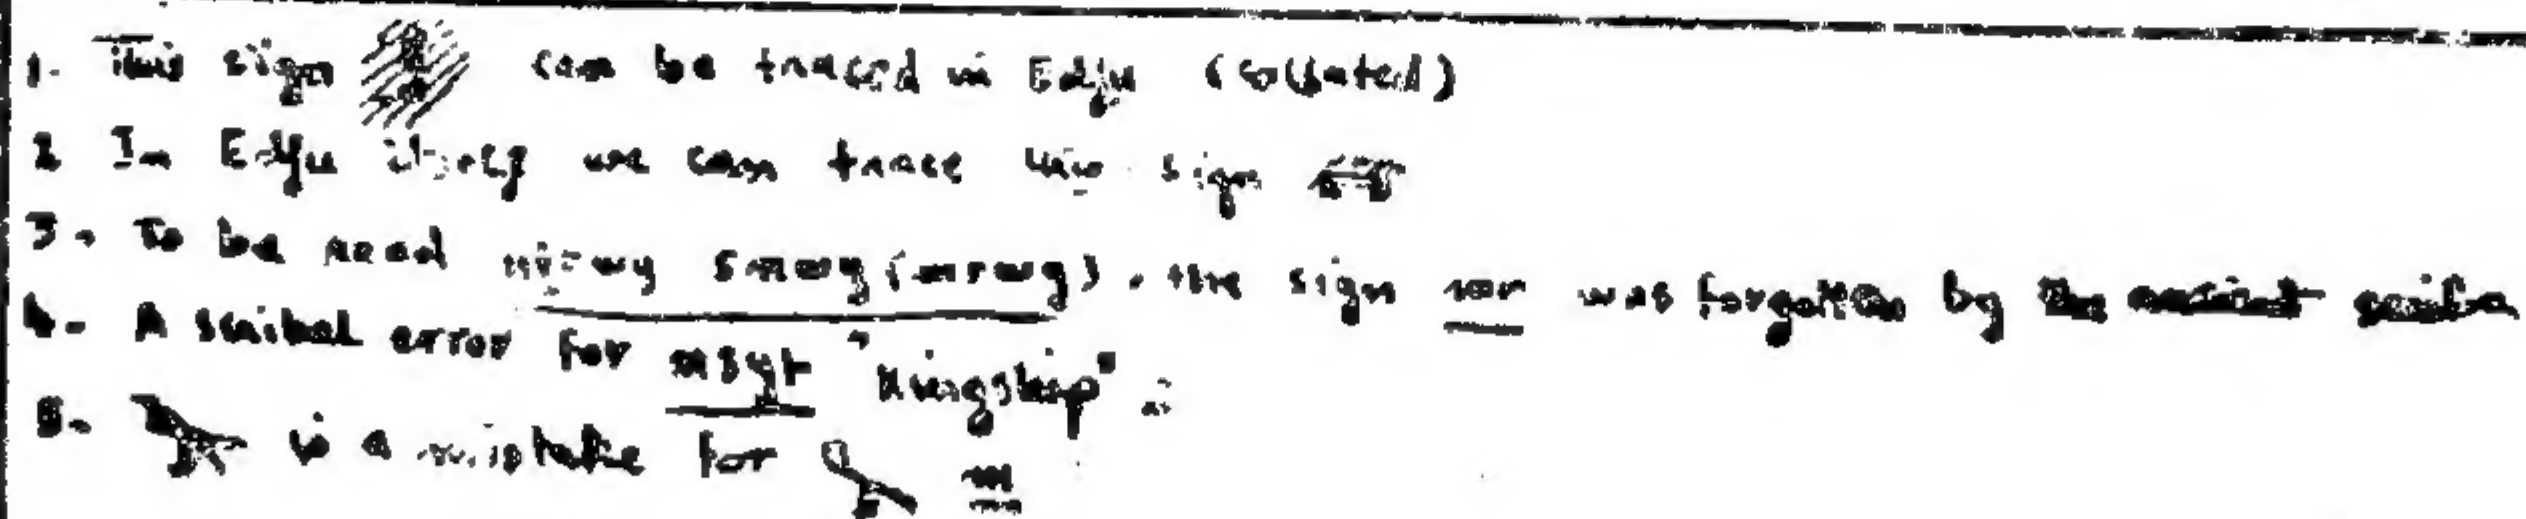 1. This sign can be traced in Edfu (collated)
2 In Edfu itself we can trace this sign
3. To be read (mrwy), the sign mr was forgotten by the ancient scribe
4. A scribal error for nsyt "Kingship" :
5. is a mistake for m